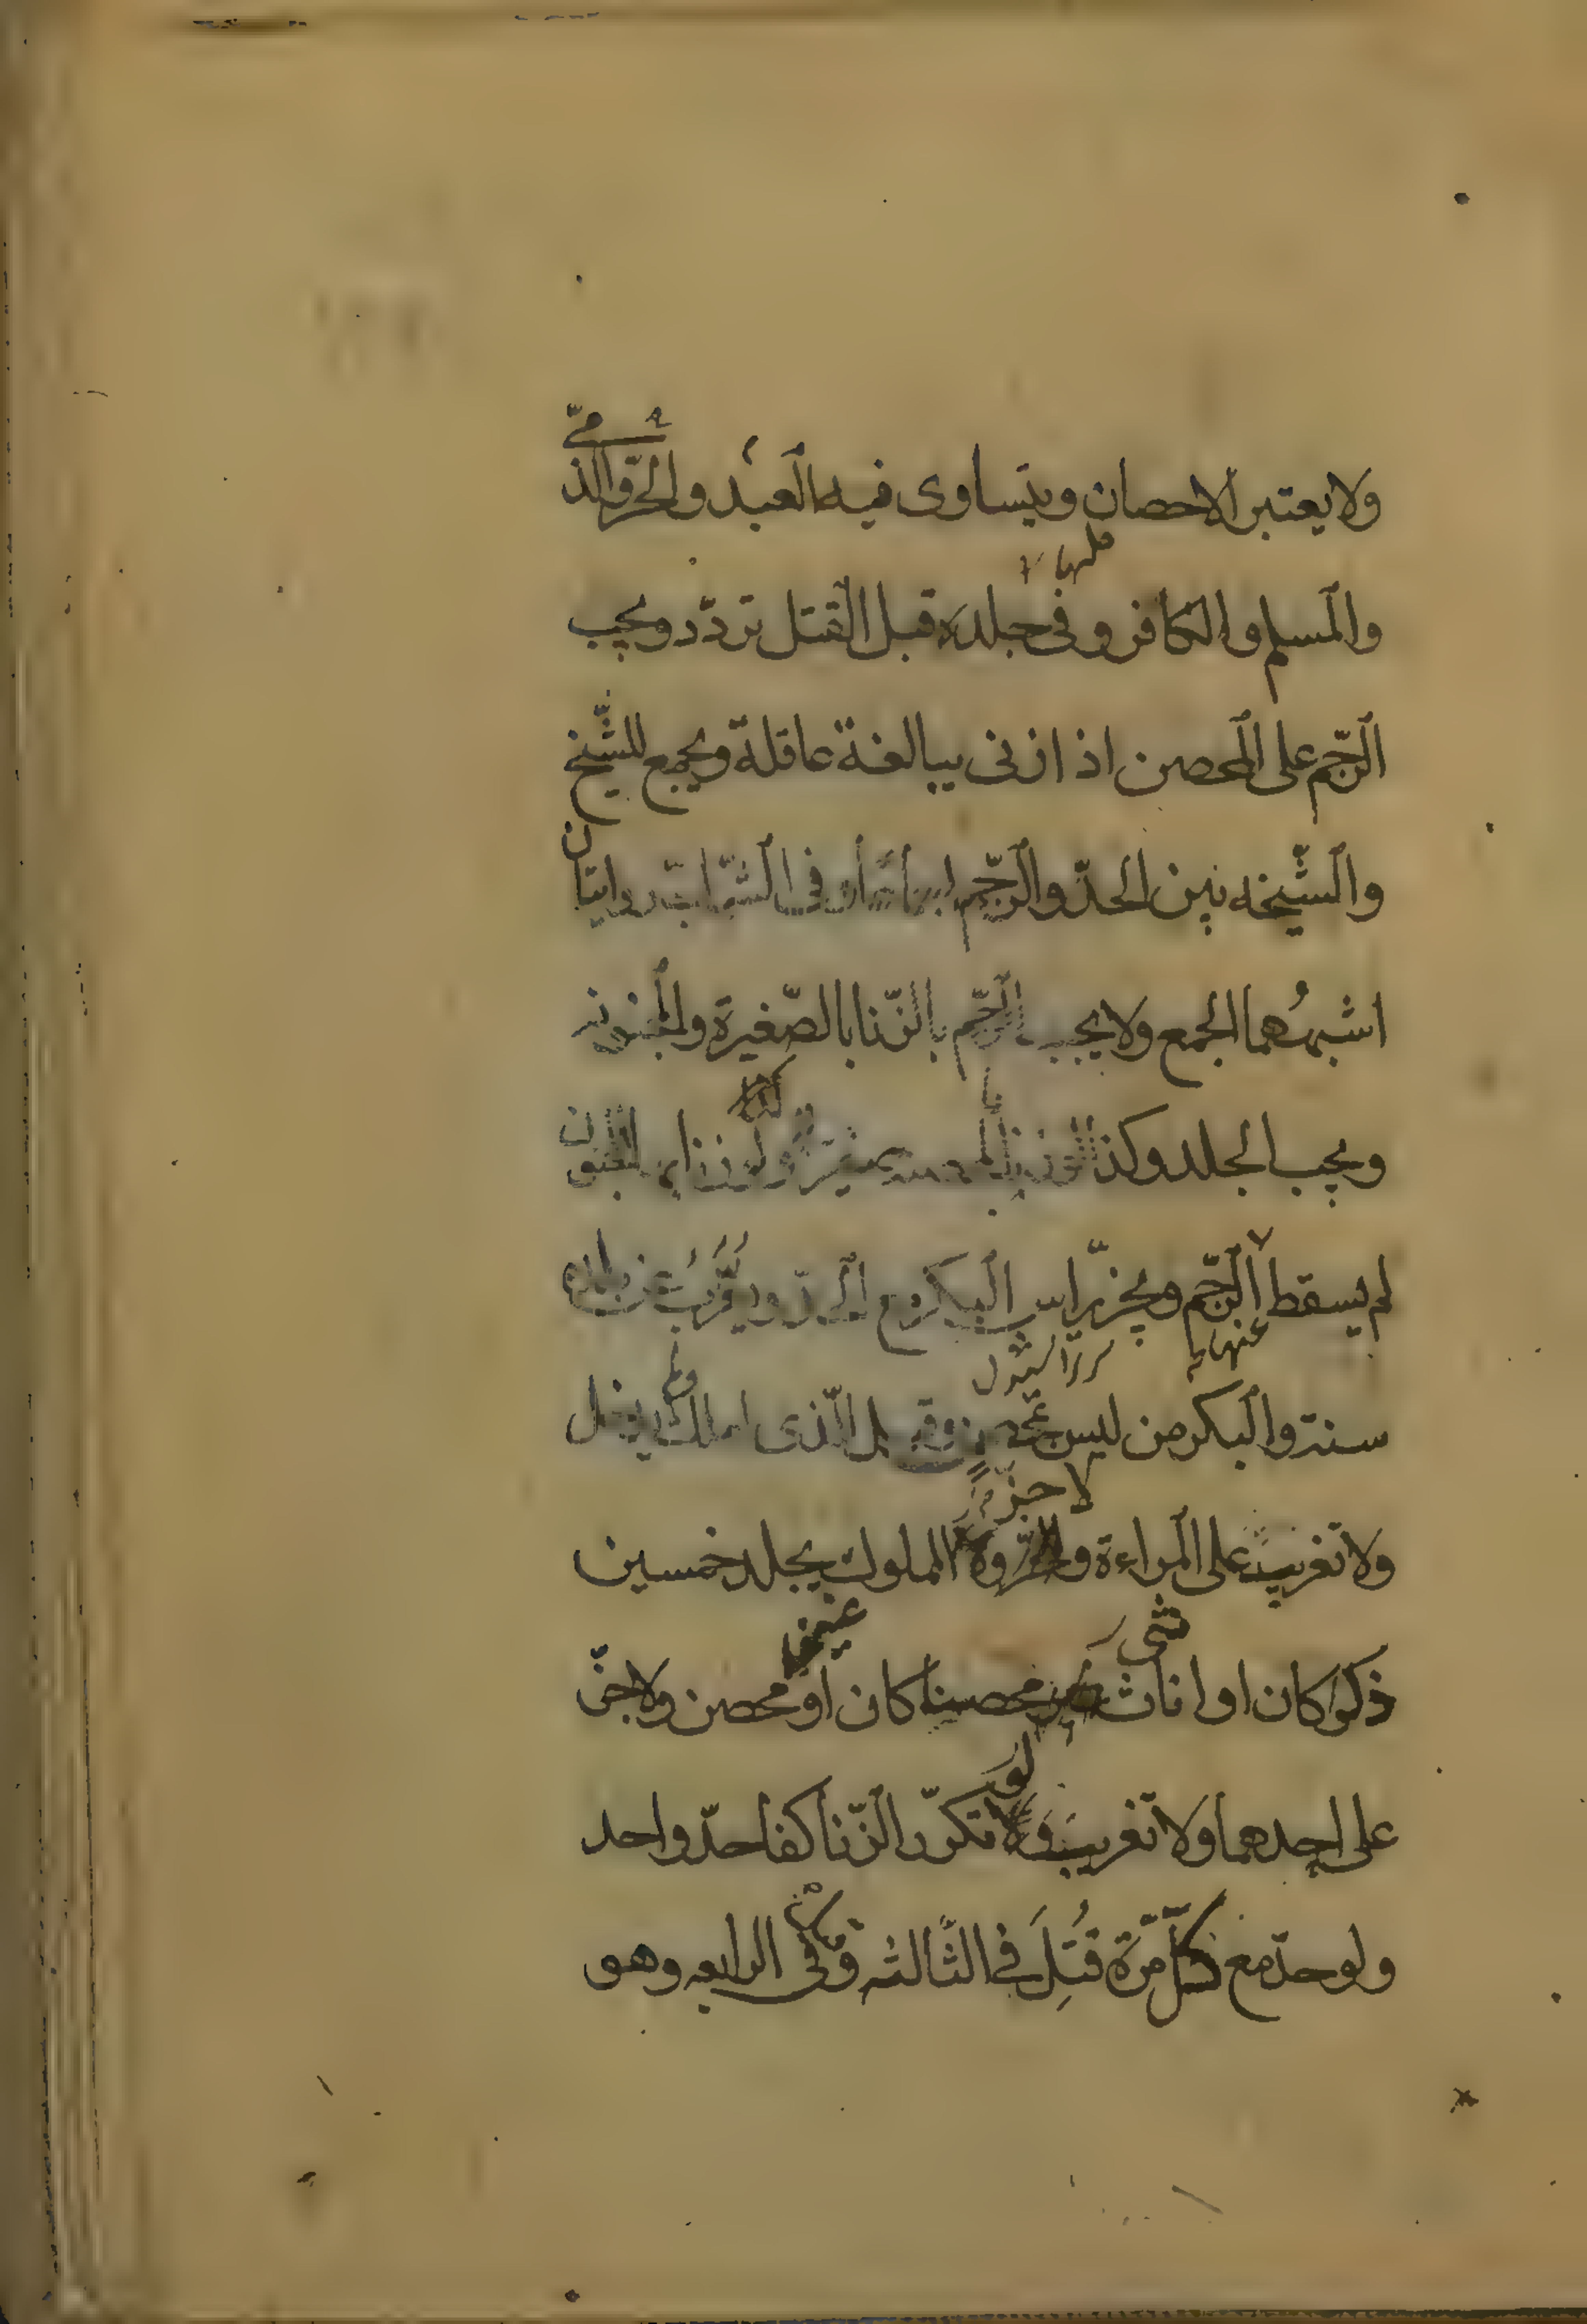 ولا يعتبر الاحصان ويتساوى فيه العبد والحرّ والذمّي
والمسلم والكافر وفي جلده قبل القتل تردّد ويجب
الرّجم على المحصن اذا زنى ببالغة عاقلة ويجمع للشّيخ
والشّيخه بين الحدّ والرّجم اجماعا وفي الشّابّ روايتان
اشبهُهما الجمع ولا يجب الرّجم بالزّنا بالصّغيرة والمجنونه
ويجب الجلد وكذا لو زنا بالمحصنه صغير ولو زنا بها المجنون
لم يسقط الرّجم ويجزّ راس البكر مع الحدّ ويغرّب عن بلده
سنة والبكر من ليس بمحصن وقيل الّذى املك ولم يدخل
ولا تغريب على المراءة ولا جزّ والمملوك يجلد خمسين
ذكرا كان او انثى محصنا كان او غير محصن ولا جزّ
على احدهما ولا تغريب ولو تكرّر الزّنا كفا حدّ واحد
ولو حدّ مع كلّ مرّة قُتِلَ في الثّالثه وقيل في الرابعه وهو